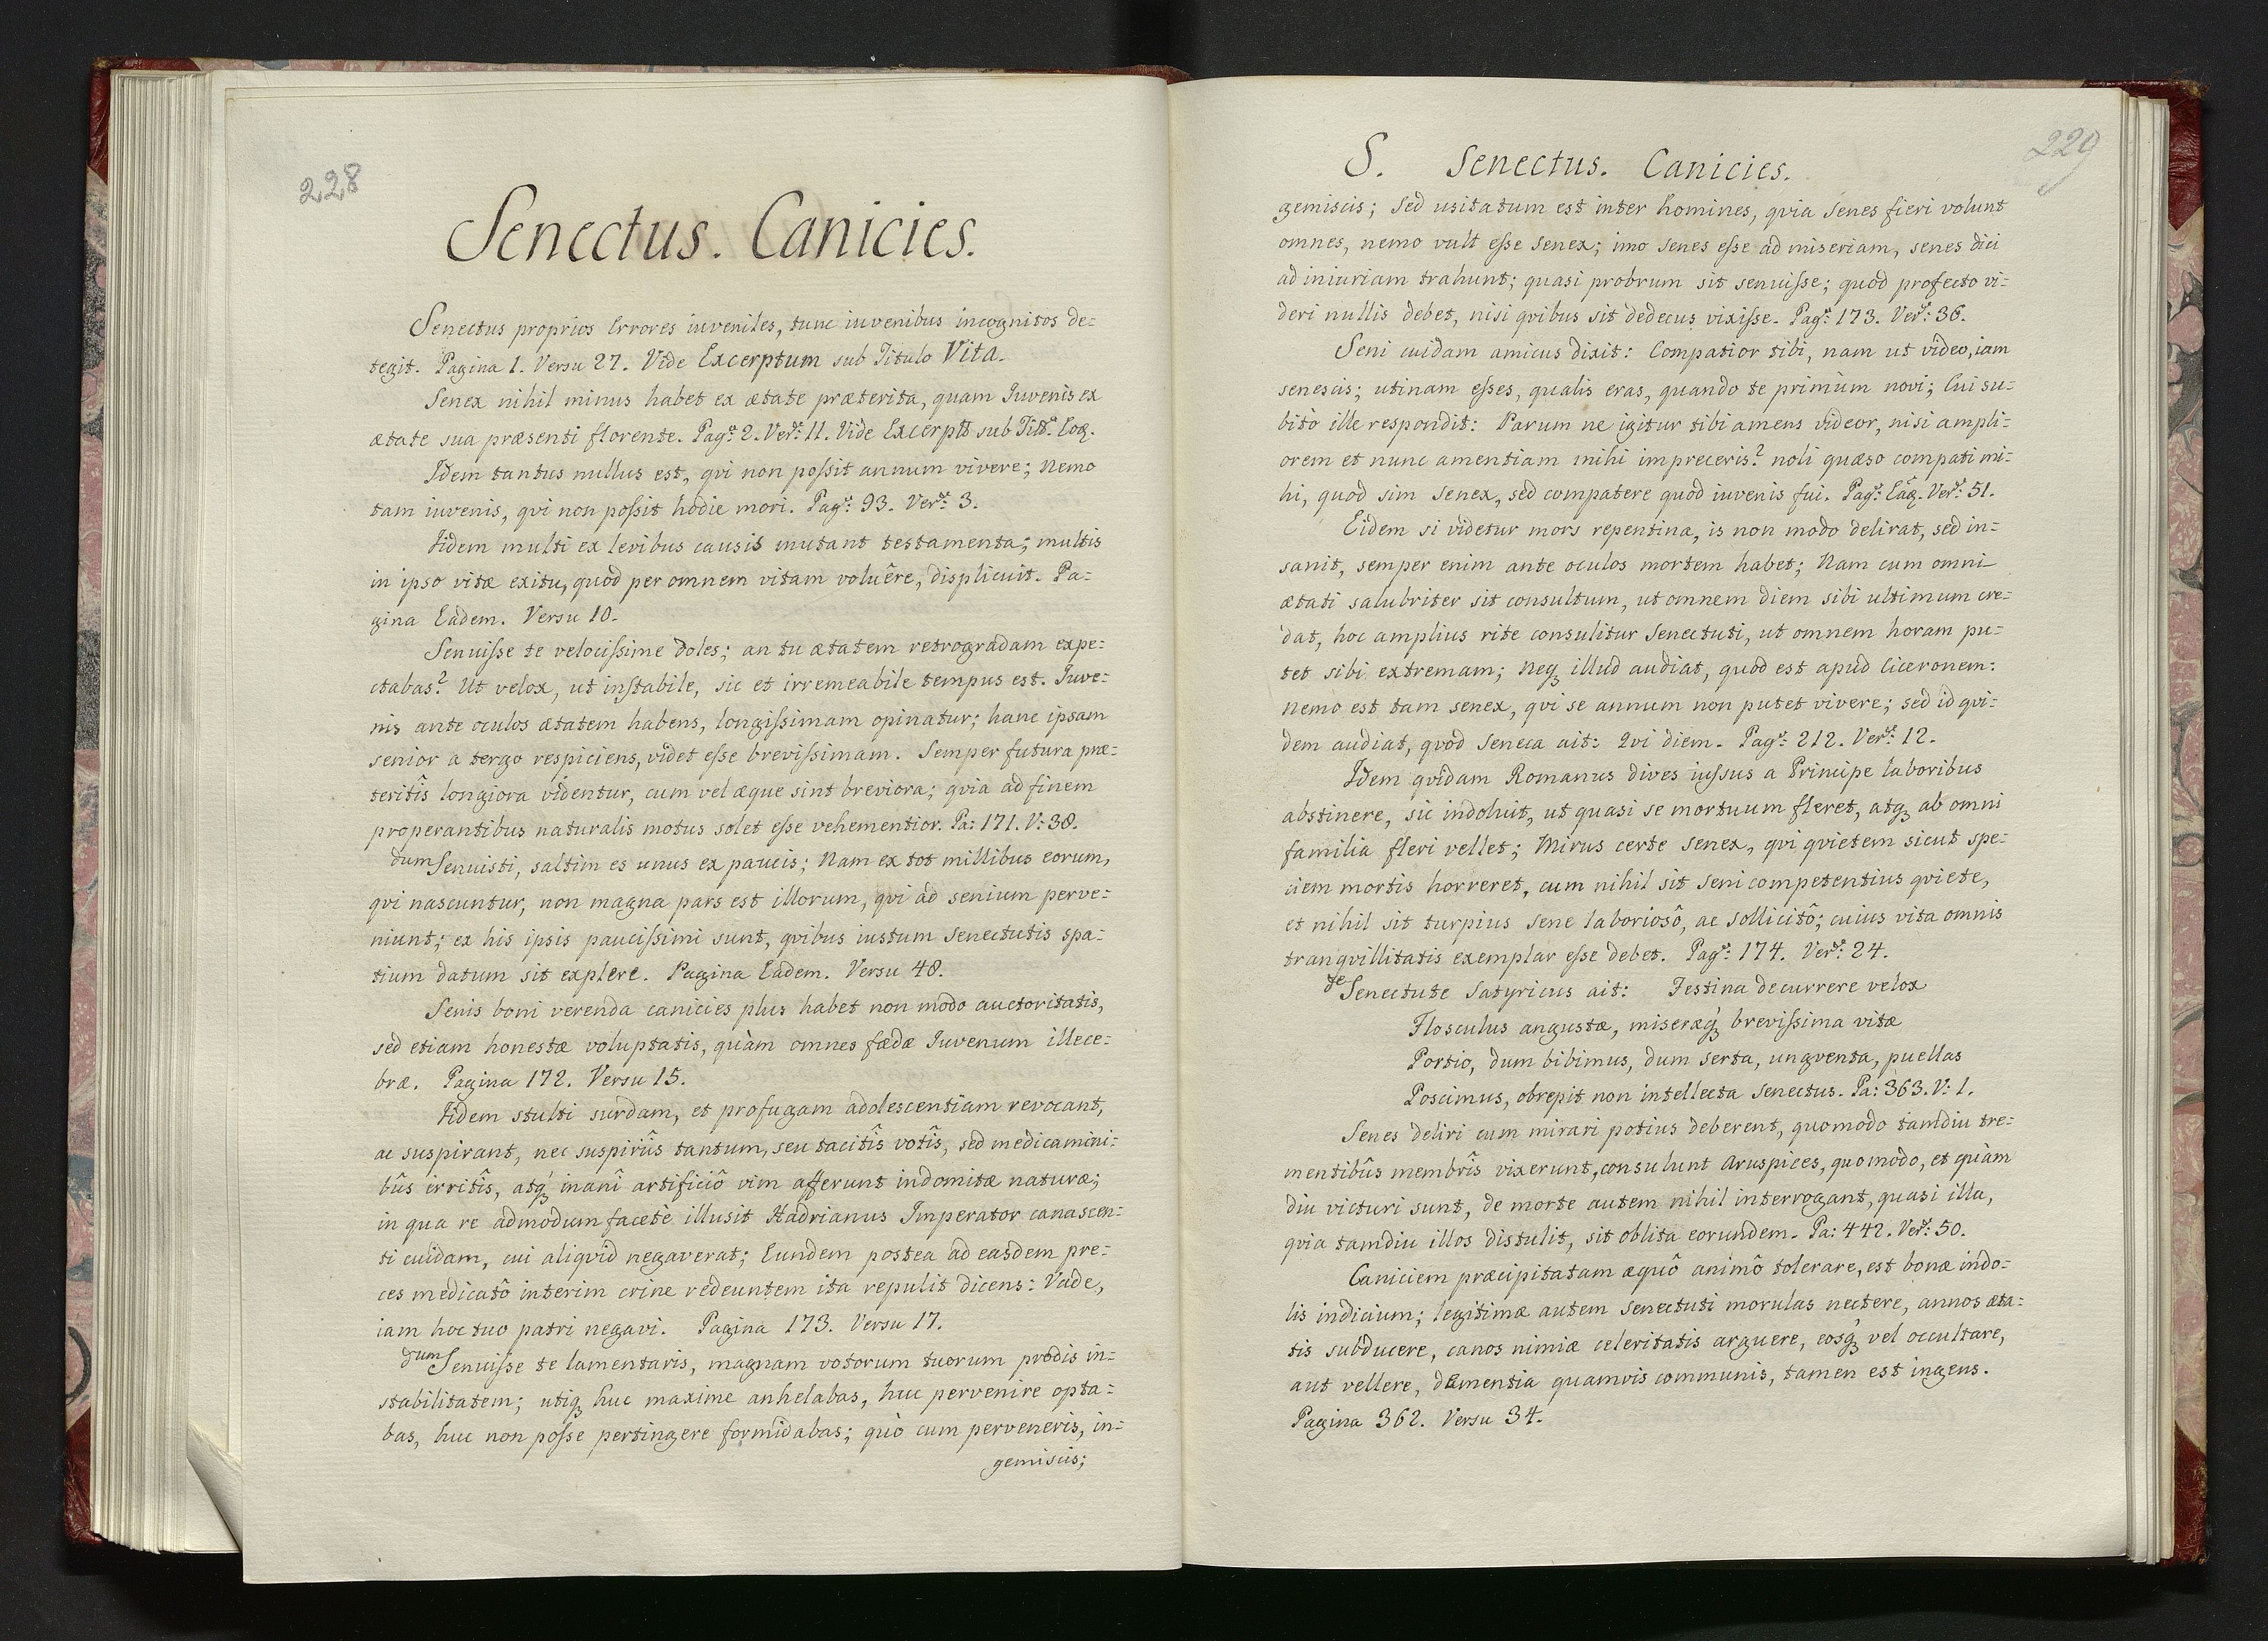 228
Senectus. Canicies.
Senectus proprios Errores iuveniles, tunc iuvenibus incognitos de=
tegit. Pagina 1. Versu 27. Vide Excerptum sub Titulo Vita.
Senex nihil minus habet ex ætate præterita, quam Iuvenis ex
ætate sua præsenti florente. Pagᵃ: 2. Verˢᵘ: 11. Vide Excerptũ sub Titᵒ: Eoq.
Idem tantus nullus est, qvi non possit annum vivere; Nemo
tam iuvenis, qvi non possit hodie mori. Pagᵃ: 93. Verˢᵘ: 3.
Iidem multi ex levibus causis mutant testamenta; multis
in ipso vitæ exitu, quod per omnem vitam voluêre, displicuit. Pa=
gina Eadem. Versu 10.
Senuisse te velocissime doles; an tu ætatem retrogradam expe=
ctabas? Ut velox, ut instabile, sic et irremeabile tempus est. Iuve=
nis ante oculos ætatem habens, longissimam opinatur; hanc ipsam
senior a tergo respiciens, videt esse brevissimam. Semper futura præ=
teritîs longiora videntur, cum vel æque sint breviora; qvia ad finem
properantibus naturalis motus solet esse vehementior. Pa: 171. V: 38.
dum Senuisti, saltim es unus ex paucis; Nam ex tot millibus eorum,
qvi nascuntur, non magna pars est illorum, qvi ad senium perve=
niunt; ex his ipsis paucissimi sunt, qvibus iustum Senectutis spa=
tium datum sit explere. Pagina Eadem. Versu 48.
Senis boni verenda canicies plus habet non modo auctoritatis,
sed etiam honestæ voluptatis, quàm omnes fædæ Iuvenum illece=
bræ. Pagina 172. Versu 15.
Iidem stulti surdam, et profugam adolescentiam revocant,
ac suspirant, nec suspiriîs tantum, seu tacitîs votîs, sed medicamini=
bûs irritîs, atq́ꝫ inanî artificiô vim afferunt indomitæ naturæ;
in qua re admodum facetè illusit Hadrianus Imperator canascen=
ti cuidam, cui aliqvid negaverat; Eundem postea ad easdem pre=
ces medicatô interim crine redeuntem ita repulit dicens: Vade,
iam hoc tuo patri negavi. Pagina 173. Versu 17.
dum Senuisse te lamentaris, magnam votorum tuorum prodis in=
stabilitatem; utiqꝫ huc maxime anhelabas, huc pervenire opta=
bas, huc non posse pertingere formidabas; quò cum perveneris, in=
gemiscis;
229
S. Senectus. Canicies.
gemiscis; Sed usitatum est inter homines, qvia Senes fieri volunt
omnes, nemo vult esse Senex; imo Senes esse ad miseriam, senes dici
ad iniuriam trahunt; quasi probrum sit senuisse; quod profecto vi=
deri nullis debet, nisi qvibus sit dedecus vixisse. Pagᵃ: 173. Verˢᵘ: 36.
Seni cuidam amicus dixit: Compatior tibi, nam ut video, iam
senescis; utinam esses, qualis eras, quando te primùm novi; Cui su=
bitò ille respondit: Parum ne igitur tibi amens videor, nisi ampli=
orem et nunc amentiam mihi impreceris? noli quæso compati mi=
hi, quod sim Senex, sed compatere quod iuvenis fui. Pagᵃ: Eâꝫ. Verˢᵘ: 51.
Eidem si videtur mors repentina, is non modo delirat, sed in=
sanit, semper enim ante oculos mortem habet; Nam cum omni
ætati salubriter sit consultum, ut omnem diem sibi ultimum cre=
dat, hoc amplius rite consulitur Senectuti, ut omnem horam pu=
tet sibi extremam; Neqꝫ illud audiat, quod est apud Ciceronem:
Nemo est tam senex, qvi se annum non putet vivere; sed id qvi=
dem audiat, qvod Seneca ait: Qvi diem. Pagᵃ: 212. Verˢᵘ: 12.
Idem qvidam Romanus dives iussus a Principe laboribus
abstinere, sic indoluit, ut quasi se mortuum fleret, atqꝫ ab omni
familia fleri vellet; Mirus certe Senex, qvi qvietem sicut spe=
ciem mortis horreret, cum nihil sit Seni competentius qviete,
et nihil sit turpius Sene laboriosô, ac Sollicitô; cuius vita omnis
tranqvillitatis exemplar esse debet. Pagᵃ: 174. Verˢᵘ: 24.
de Senectute Satyricus ait: Festina decurrere velox
Flosculus angustæ, miseræq́ꝫ brevissima vitæ
Portio, dum bibimus, dum serta, ungventa, puellas
Poscimus, obrepit non intellecta Senectus. Pa: 363. V: 1.
Senes deliri cum mirari potius deberent, quomodo tamdiu tre=
mentibûs membrîs vixerunt, consulunt Aruspices, quomodo, et quàm
diu victuri sunt, de morte autem nihil interrogant, quasi illa,
qvia tamdiu illos distulit, sit oblita eorundem. Pa: 442. Verˢᵘ: 50.
Caniciem præcipitatam æquô animô tolerare, est bonæ indo=
lis indicium; legitimæ autem Senectuti morulas nectere, annos æta=
tis subducere, canos nimiæ celeritatis arguere, eosq́ꝫ vel occultare,
aut vellere, dementia quamvis communis, tamen est ingens.
Pagina 362. Versu 34.